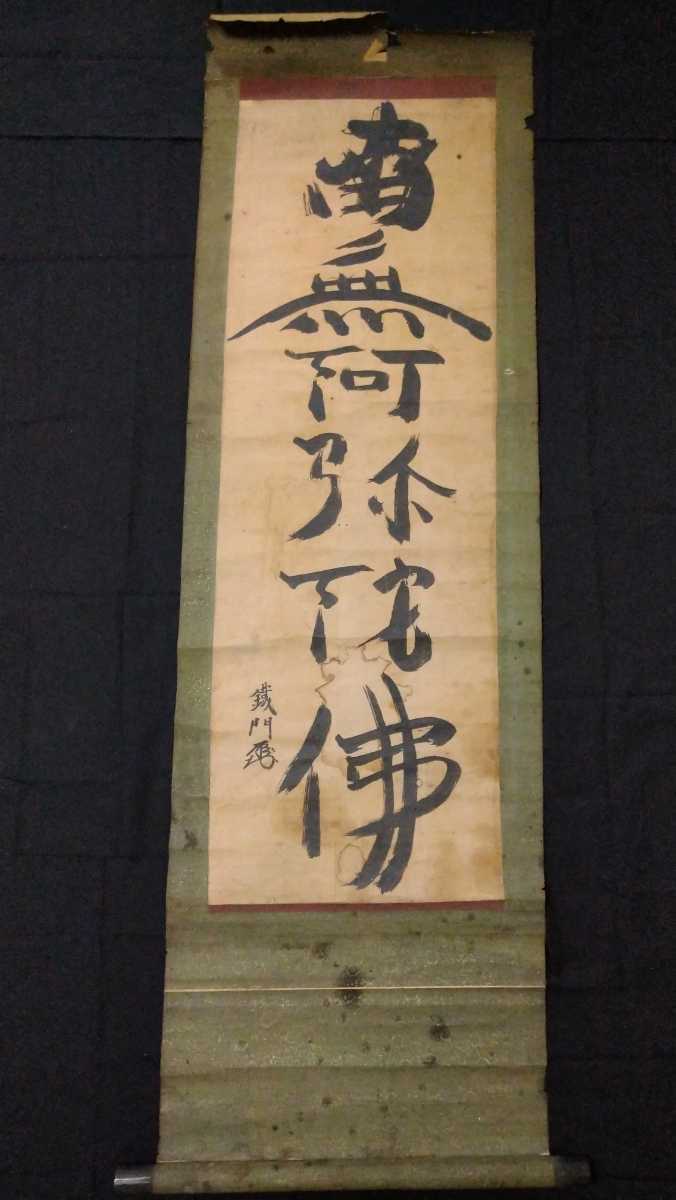 南無阿弥陀佛
鐵門